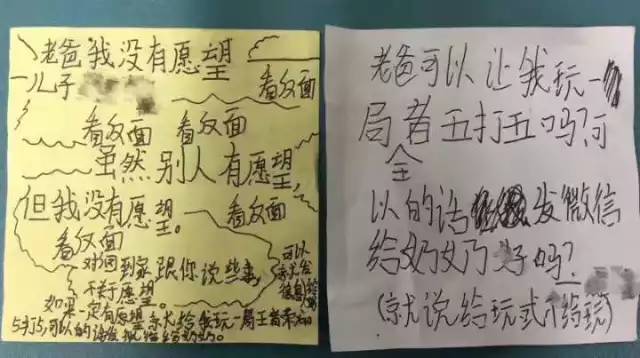 老爸我没有愿望
儿子
看反面
看反面 看反面
虽然别人有愿望,
但我没有愿望。
看反面
看反面
到家跟你说些事,
不关于愿望。
可以
如果一定有愿望
给我玩一局王者荣
5打5,可以的话发
给奶奶。
老爸可以让我玩一
局王者五打五吗?可
以的话发微信
给奶奶好吗?
(就说给玩或不给玩)